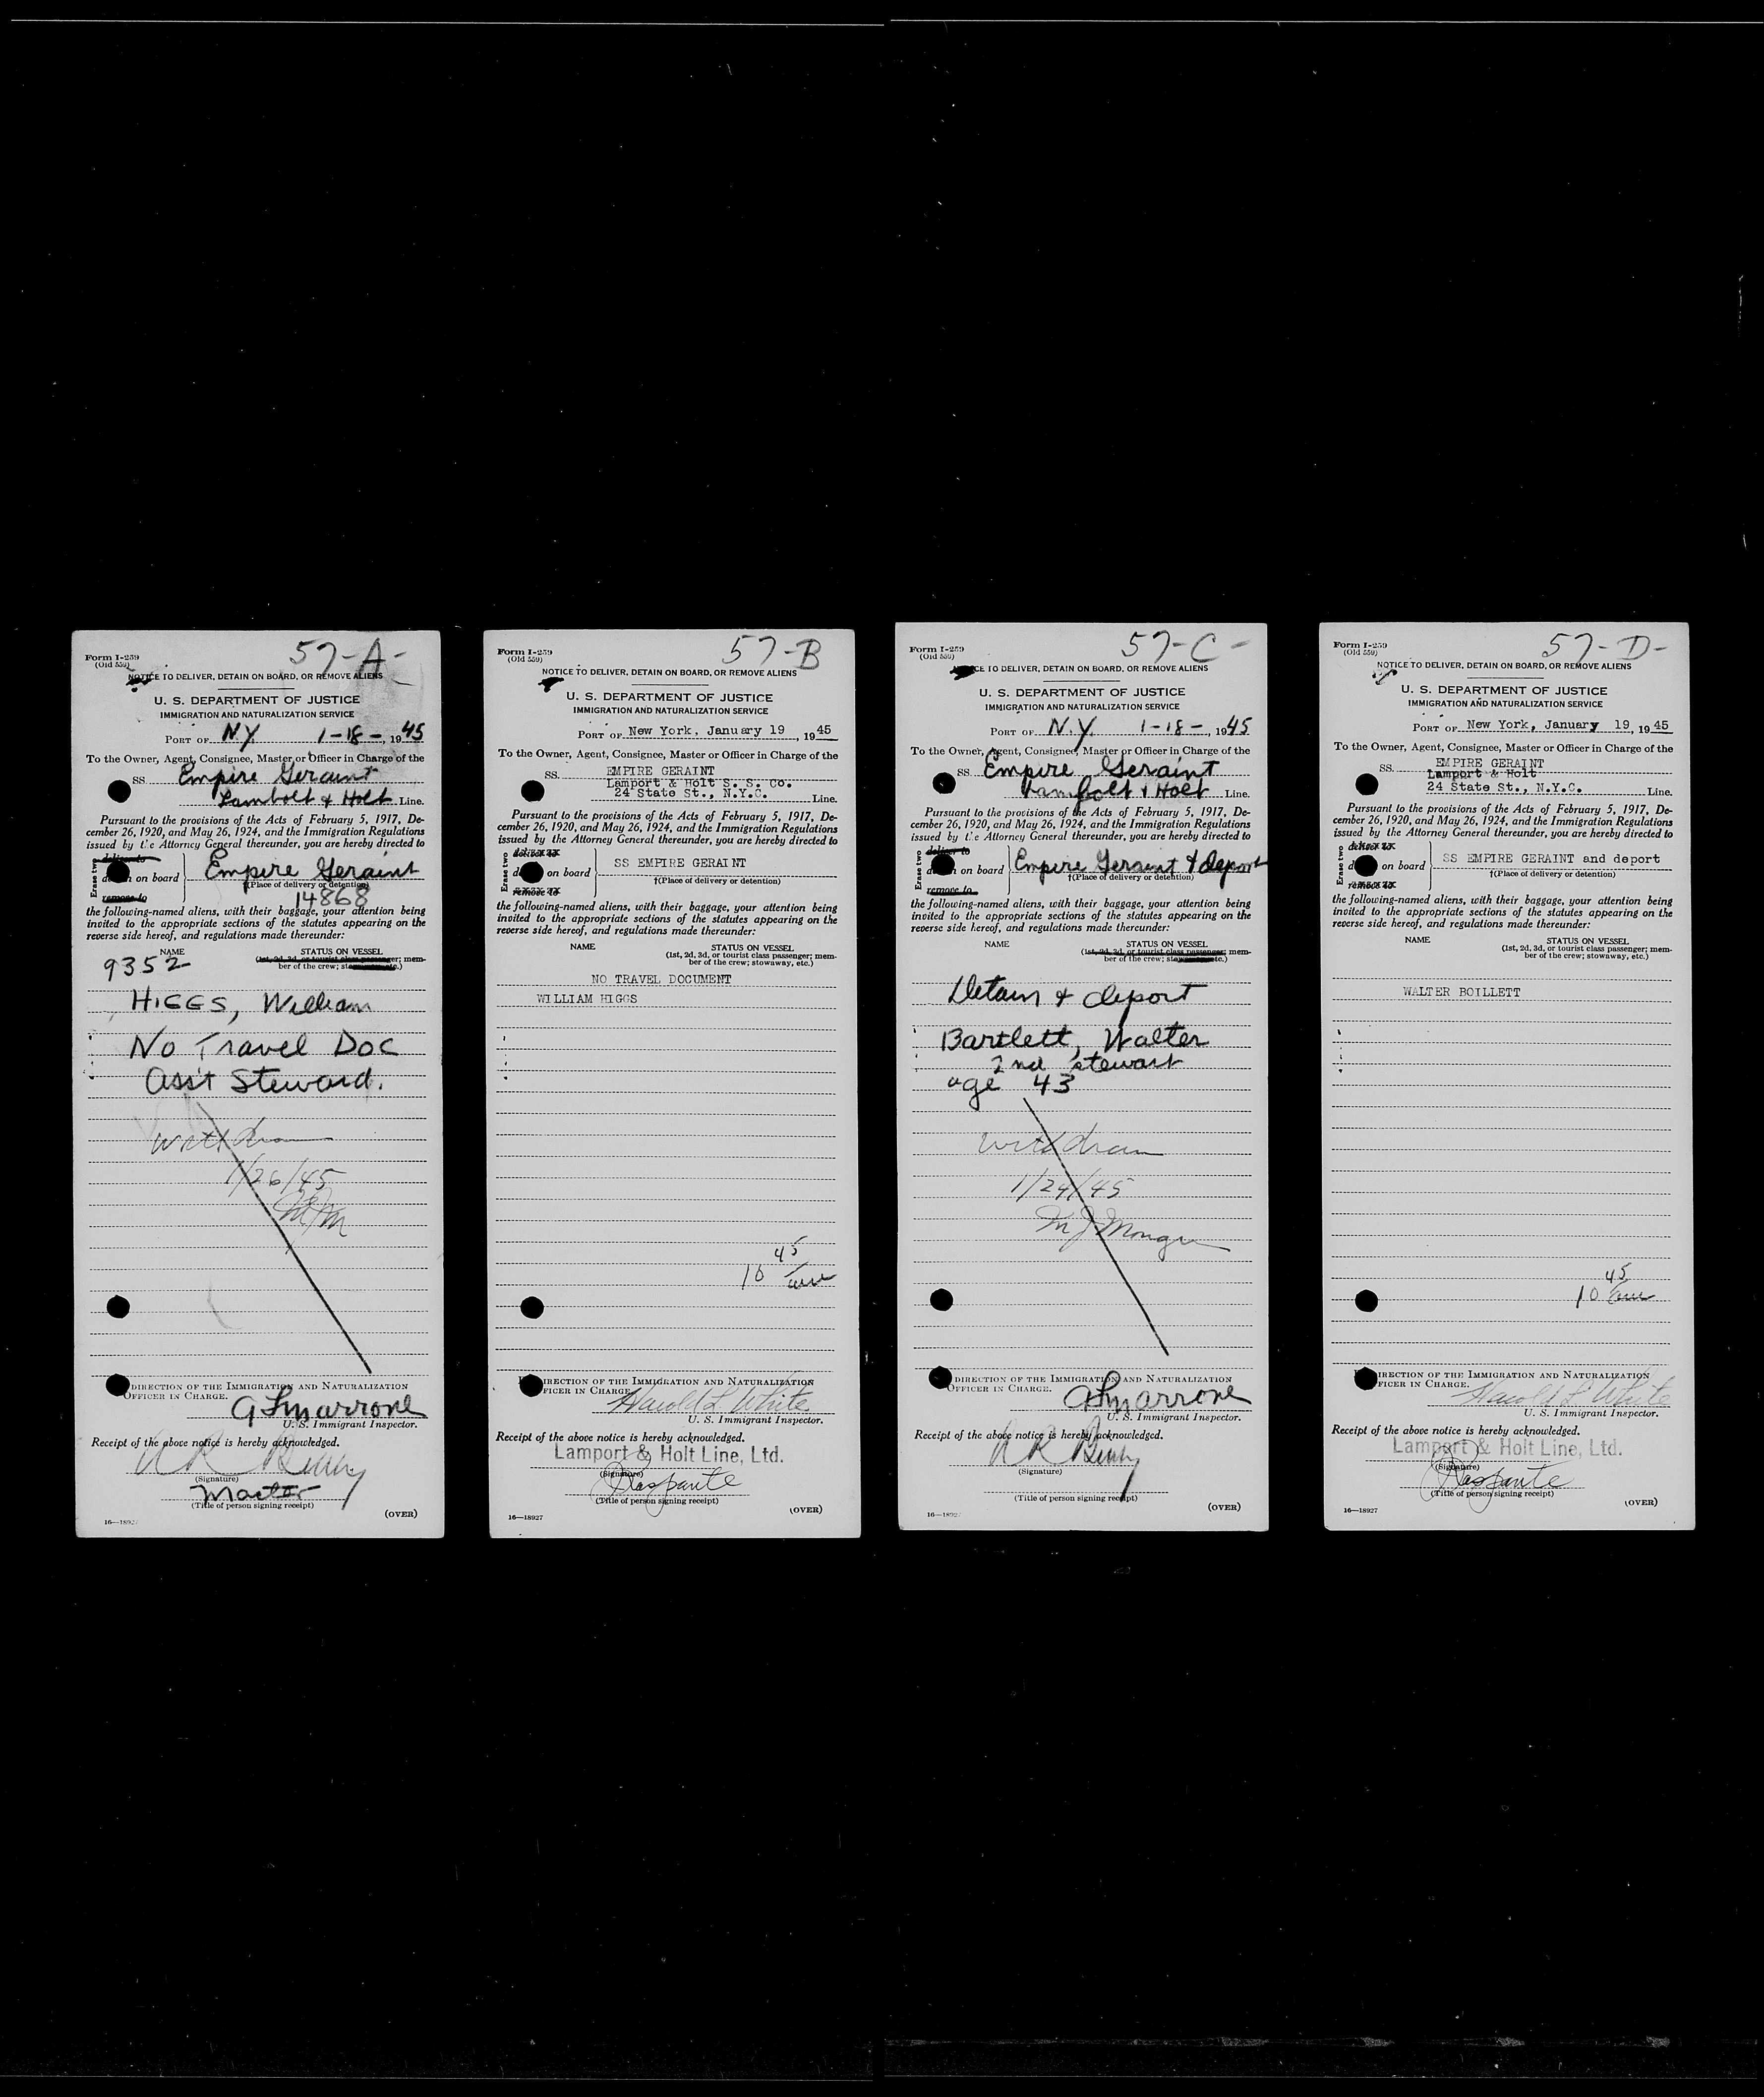 57-A-
Form I-259
(Old 559)
NOTICE TO DELIVER, DETAIN ON BOARD, OR REMOVE ALIENS
U. S. DEPARTMENT OF JUSTICE
IMMIGRATION AND NATURALIZATION SERVICE
PORT OF N.Y. 1-18-, 1945
To the Owner, Agent, Consignee, Master or Officer in Charge of the
SS. Empire Geraint
Lambolt & Holt Line.
Pursuant to the provisions of the Acts of February 5, 1917, De-
cember 26, 1920, and May 26, 1924, and the Immigration Regulations
issued by the Attorney General thereunder, you are hereby directed to
Erase two
deliver to
on board Empire Geraint
remove to
†(Place of delivery or detention)
14868
the following-named aliens, with their baggage, your attention being
invited to the appropriate sections of the statutes appearing on the
reverse side hereof, and regulations made thereunder:
NAME STATUS ON VESSEL
(1st, 2d, 3d, or tourist class passenger; mem-
ber of the crew; etc.)
9352
HIGGS, William
No Travel Doc
Ass't Steward.
Withdrawn
1/26/45
DIRECTION OF THE IMMIGRATION AND NATURALIZATION
OFFICER IN CHARGE.
Marrone
U. S. Immigrant Inspector.
Receipt of the above notice is hereby acknowledged.
(Signature)
Master
(Title of person signing receipt)
(OVER)
16—18927
57-B
Form I-259
(Old 559)
NOTICE TO DELIVER, DETAIN ON BOARD, OR REMOVE ALIENS
U. S. DEPARTMENT OF JUSTICE
IMMIGRATION AND NATURALIZATION SERVICE
PORT OF New York, January 19, 1945
To the Owner, Agent, Consignee, Master or Officer in Charge of the
SS. EMPIRE GERAINT
Lamport & Holt S. S. Co.
24 State St., N.Y.C. Line.
Pursuant to the provisions of the Acts of February 5, 1917, De-
cember 26, 1920, and May 26, 1924, and the Immigration Regulations
issued by the Attorney General thereunder, you are hereby directed to
Erase two
deliver to
on board SS EMPIRE GERAINT
remove to
†(Place of delivery or detention)
the following-named aliens, with their baggage, your attention being
invited to the appropriate sections of the statutes appearing on the
reverse side hereof, and regulations made thereunder:
NAME STATUS ON VESSEL
(1st, 2d, 3d, or tourist class passenger; mem-
ber of the crew; stowaway, etc.)
NO TRAVEL DOCUMENT
WILLIAM HIGGS
10 45 am
DIRECTION OF THE IMMIGRATION AND NATURALIZATION
OFFICER IN CHARGE.
Harold L White
U. S. Immigrant Inspector.
Receipt of the above notice is hereby acknowledged.
Lamport & Holt Line, Ltd.
(Signature)
(Title of person signing receipt)
(OVER)
16—18927
57-C-
Form I-259
(Old 559)
NOTICE TO DELIVER, DETAIN ON BOARD, OR REMOVE ALIENS
U. S. DEPARTMENT OF JUSTICE
IMMIGRATION AND NATURALIZATION SERVICE
PORT OF N.Y. 1-18-, 1945
To the Owner, Agent, Consignee, Master or Officer in Charge of the
SS. Empire Geraint
Lambolt & Holt Line.
Pursuant to the provisions of the Acts of February 5, 1917, De-
cember 26, 1920, and May 26, 1924, and the Immigration Regulations
issued by the Attorney General thereunder, you are hereby directed to
Erase two
deliver to
on board Empire Geraint & deport
remove to
†(Place of delivery or detention)
the following-named aliens, with their baggage, your attention being
invited to the appropriate sections of the statutes appearing on the
reverse side hereof, and regulations made thereunder:
NAME STATUS ON VESSEL
(1st, 2d, 3d, or tourist class passenger; mem-
ber of the crew; etc.)
Detain & deport
Bartlett, Walter
2nd stewart
age 43
Withdrawn
1/24/45
DIRECTION OF THE IMMIGRATION AND NATURALIZATION
OFFICER IN CHARGE.
Marrone
U. S. Immigrant Inspector.
Receipt of the above notice is hereby acknowledged.
(Signature)
(Title of person signing receipt)
(OVER)
16—18927
57-D-
Form I-259
(Old 559)
NOTICE TO DELIVER, DETAIN ON BOARD, OR REMOVE ALIENS
U. S. DEPARTMENT OF JUSTICE
IMMIGRATION AND NATURALIZATION SERVICE
PORT OF New York, January 19, 1945
To the Owner, Agent, Consignee, Master or Officer in Charge of the
SS. EMPIRE GERAINT
Lamport & Holt
24 State St., N.Y.C. Line.
Pursuant to the provisions of the Acts of February 5, 1917, De-
cember 26, 1920, and May 26, 1924, and the Immigration Regulations
issued by the Attorney General thereunder, you are hereby directed to
Erase two
deliver to
on board SS EMPIRE GERAINT and deport
remove to
†(Place of delivery or detention)
the following-named aliens, with their baggage, your attention being
invited to the appropriate sections of the statutes appearing on the
reverse side hereof, and regulations made thereunder:
NAME STATUS ON VESSEL
(1st, 2d, 3d, or tourist class passenger; mem-
ber of the crew; stowaway, etc.)
WALTER BOILLETT
10 45 am
DIRECTION OF THE IMMIGRATION AND NATURALIZATION
OFFICER IN CHARGE.
Harold L White
U. S. Immigrant Inspector.
Receipt of the above notice is hereby acknowledged.
Lamport & Holt Line, Ltd.
(Signature)
(Title of person signing receipt)
(OVER)
16—18927